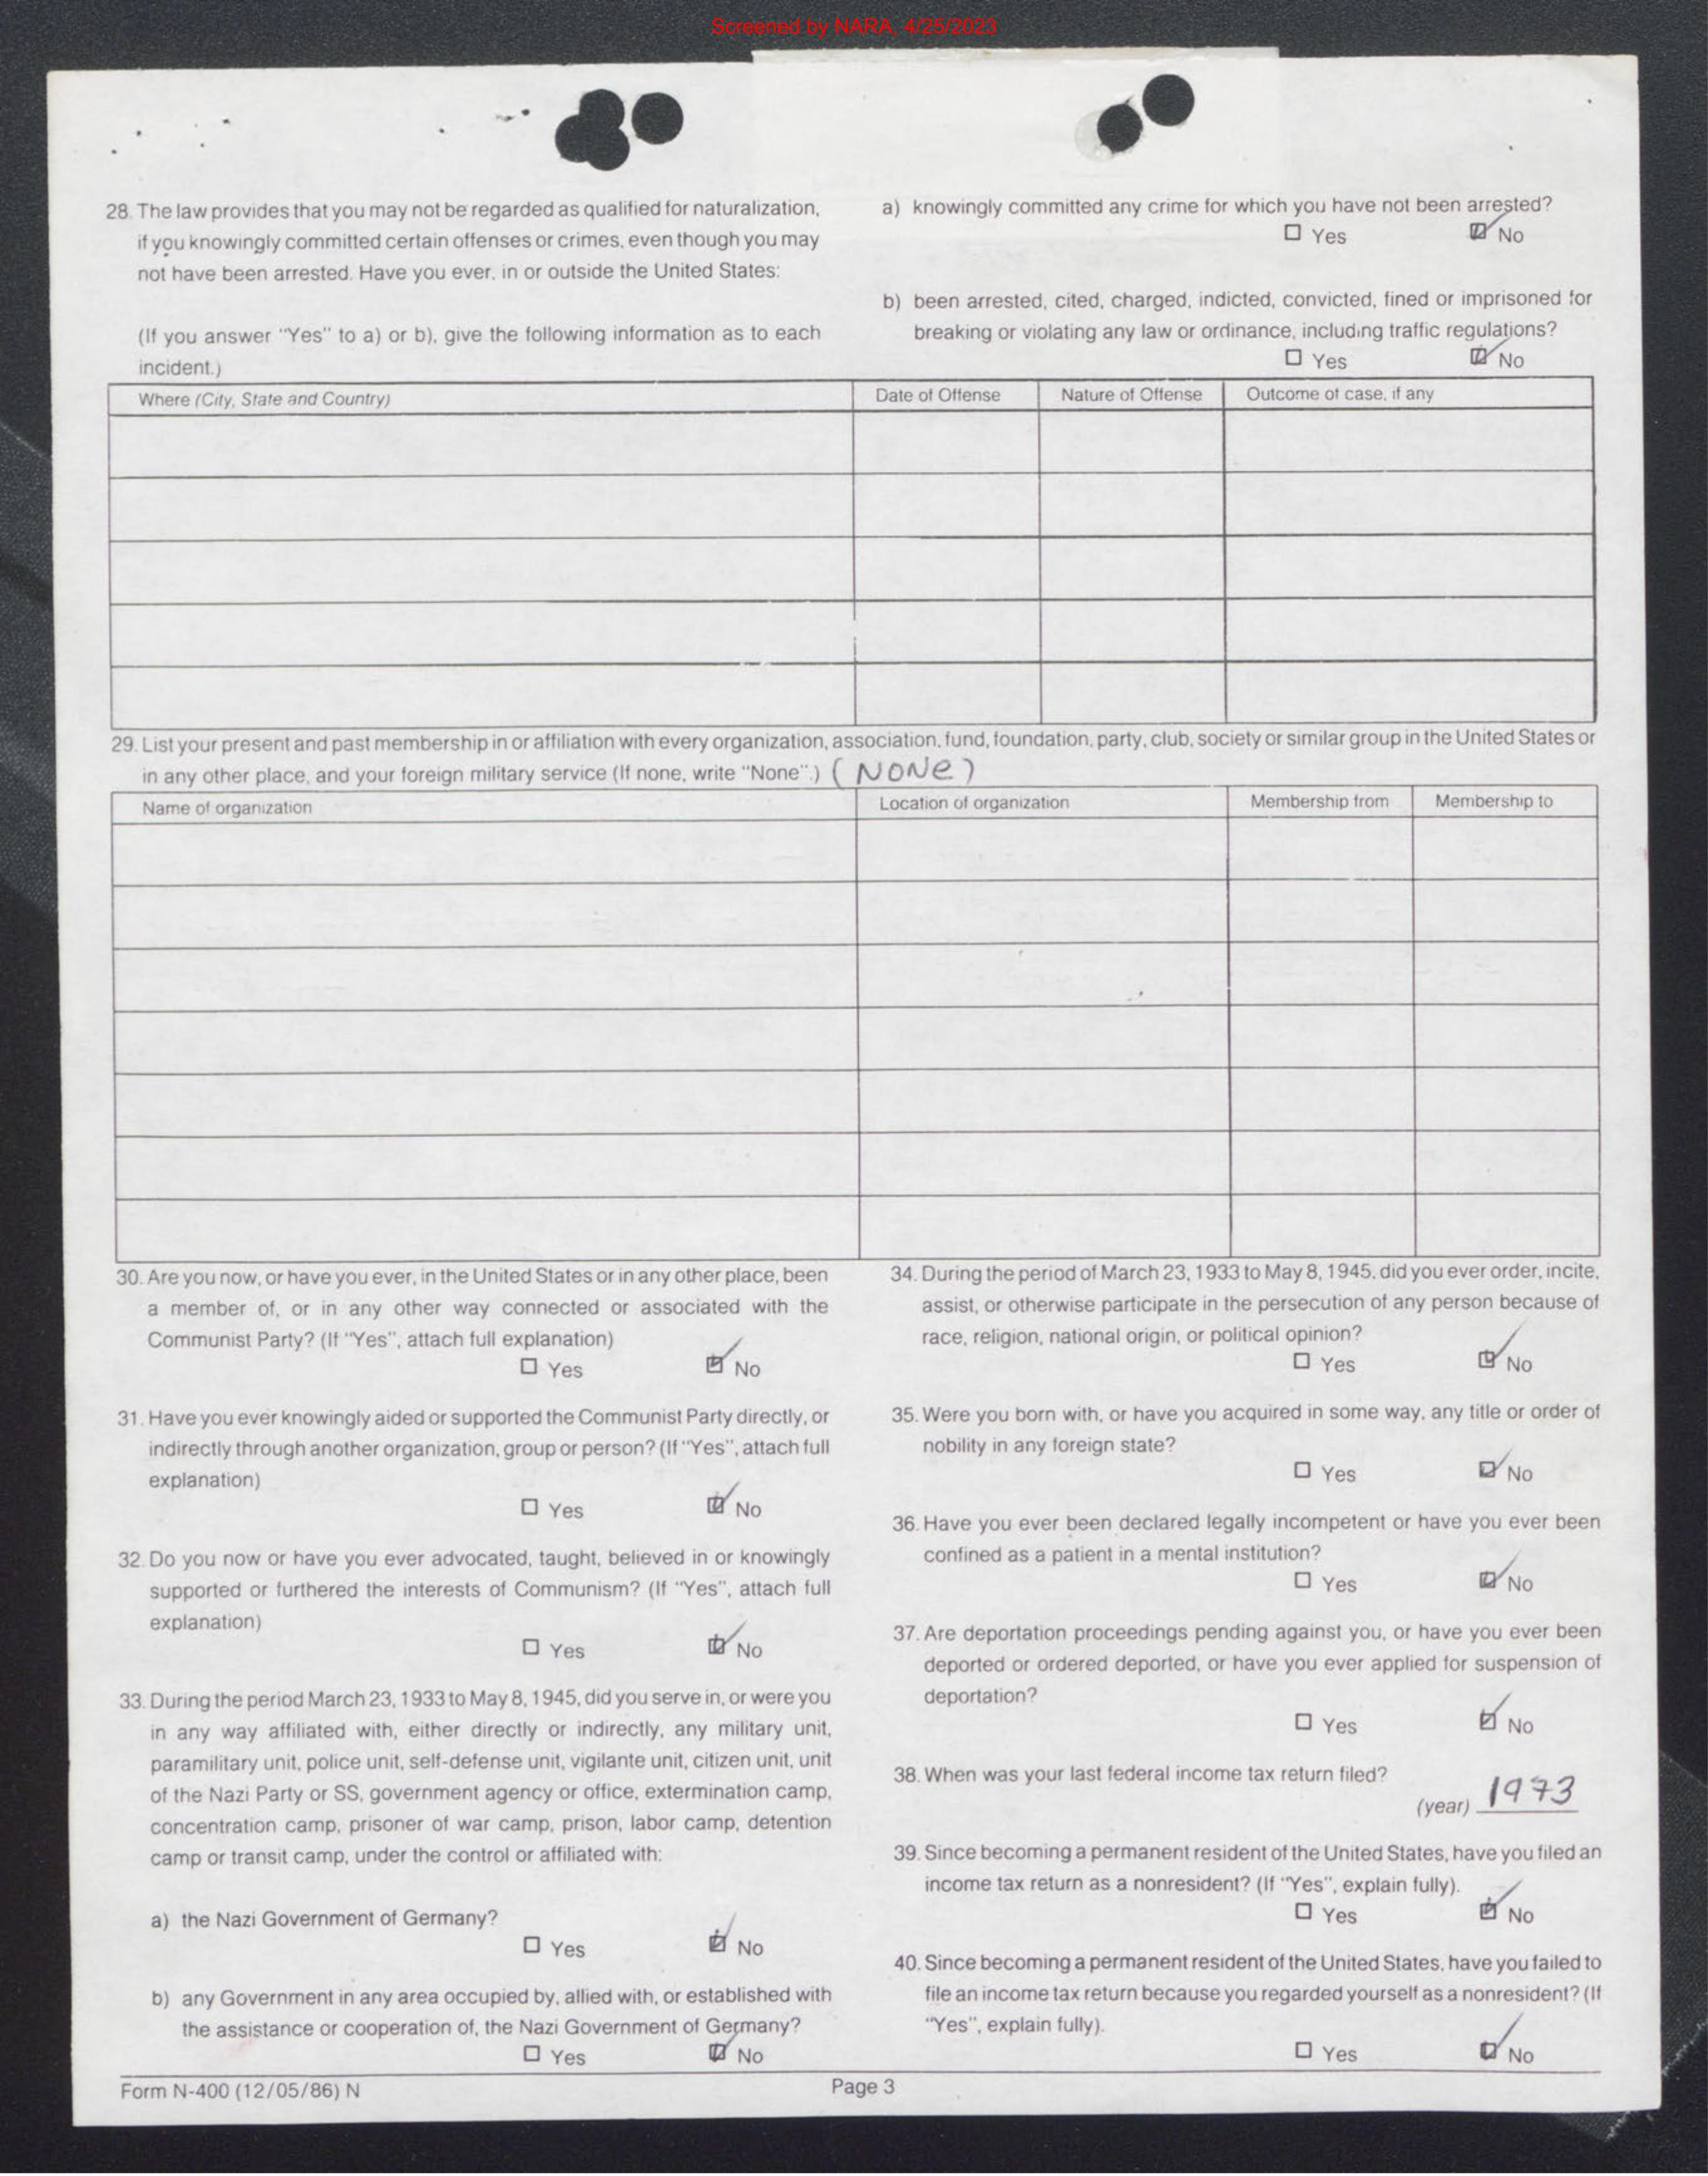 Screened by NARA, 4/25/2023
28. The law provides that you may not be regarded as qualified for naturalization,
if you knowingly committed certain offenses or crimes, even though you may
not have been arrested. Have you ever, in or outside the United States:
(If you answer "Yes" to a) or b), give the following information as to each
incident.)
a) knowingly committed any crime for which you have not been arrested?
☐ Yes ☑ No
b) been arrested, cited, charged, indicted, convicted, fined or imprisoned for
breaking or violating any law or ordinance, including traffic regulations?
☐ Yes ☑ No
Where (City, State and Country) Date of Offense Nature of Offense Outcome of case, if any
29. List your present and past membership in or affiliation with every organization, association, fund, foundation, party, club, society or similar group in the United States or
in any other place, and your foreign military service (If none, write "None".) (NONe)
Name of organization Location of organization Membership from Membership to
30. Are you now, or have you ever, in the United States or in any other place, been
a member of, or in any other way connected or associated with the
Communist Party? (If "Yes", attach full explanation)
☐ Yes ☑ No
31. Have you ever knowingly aided or supported the Communist Party directly, or
indirectly through another organization, group or person? (If "Yes", attach full
explanation)
☐ Yes ☑ No
32. Do you now or have you ever advocated, taught, believed in or knowingly
supported or furthered the interests of Communism? (If "Yes", attach full
explanation)
☐ Yes ☑ No
33. During the period March 23, 1933 to May 8, 1945, did you serve in, or were you
in any way affiliated with, either directly or indirectly, any military unit,
paramilitary unit, police unit, self-defense unit, vigilante unit, citizen unit, unit
of the Nazi Party or SS, government agency or office, extermination camp,
concentration camp, prisoner of war camp, prison, labor camp, detention
camp or transit camp, under the control or affiliated with:
a) the Nazi Government of Germany?
☐ Yes ☑ No
b) any Government in any area occupied by, allied with, or established with
the assistance or cooperation of, the Nazi Government of Germany?
☐ Yes ☑ No
34. During the period of March 23, 1933 to May 8, 1945, did you ever order, incite,
assist, or otherwise participate in the persecution of any person because of
race, religion, national origin, or political opinion?
☐ Yes ☑ No
35. Were you born with, or have you acquired in some way, any title or order of
nobility in any foreign state?
☐ Yes ☑ No
36. Have you ever been declared legally incompetent or have you ever been
confined as a patient in a mental institution?
☐ Yes ☑ No
37. Are deportation proceedings pending against you, or have you ever been
deported or ordered deported, or have you ever applied for suspension of
deportation?
☐ Yes ☑ No
38. When was your last federal income tax return filed?
(year) 1973
39. Since becoming a permanent resident of the United States, have you filed an
income tax return as a nonresident? (If "Yes", explain fully).
☐ Yes ☑ No
40. Since becoming a permanent resident of the United States, have you failed to
file an income tax return because you regarded yourself as a nonresident? (If
"Yes", explain fully).
☐ Yes ☑ No
Form N-400 (12/05/86) N Page 3